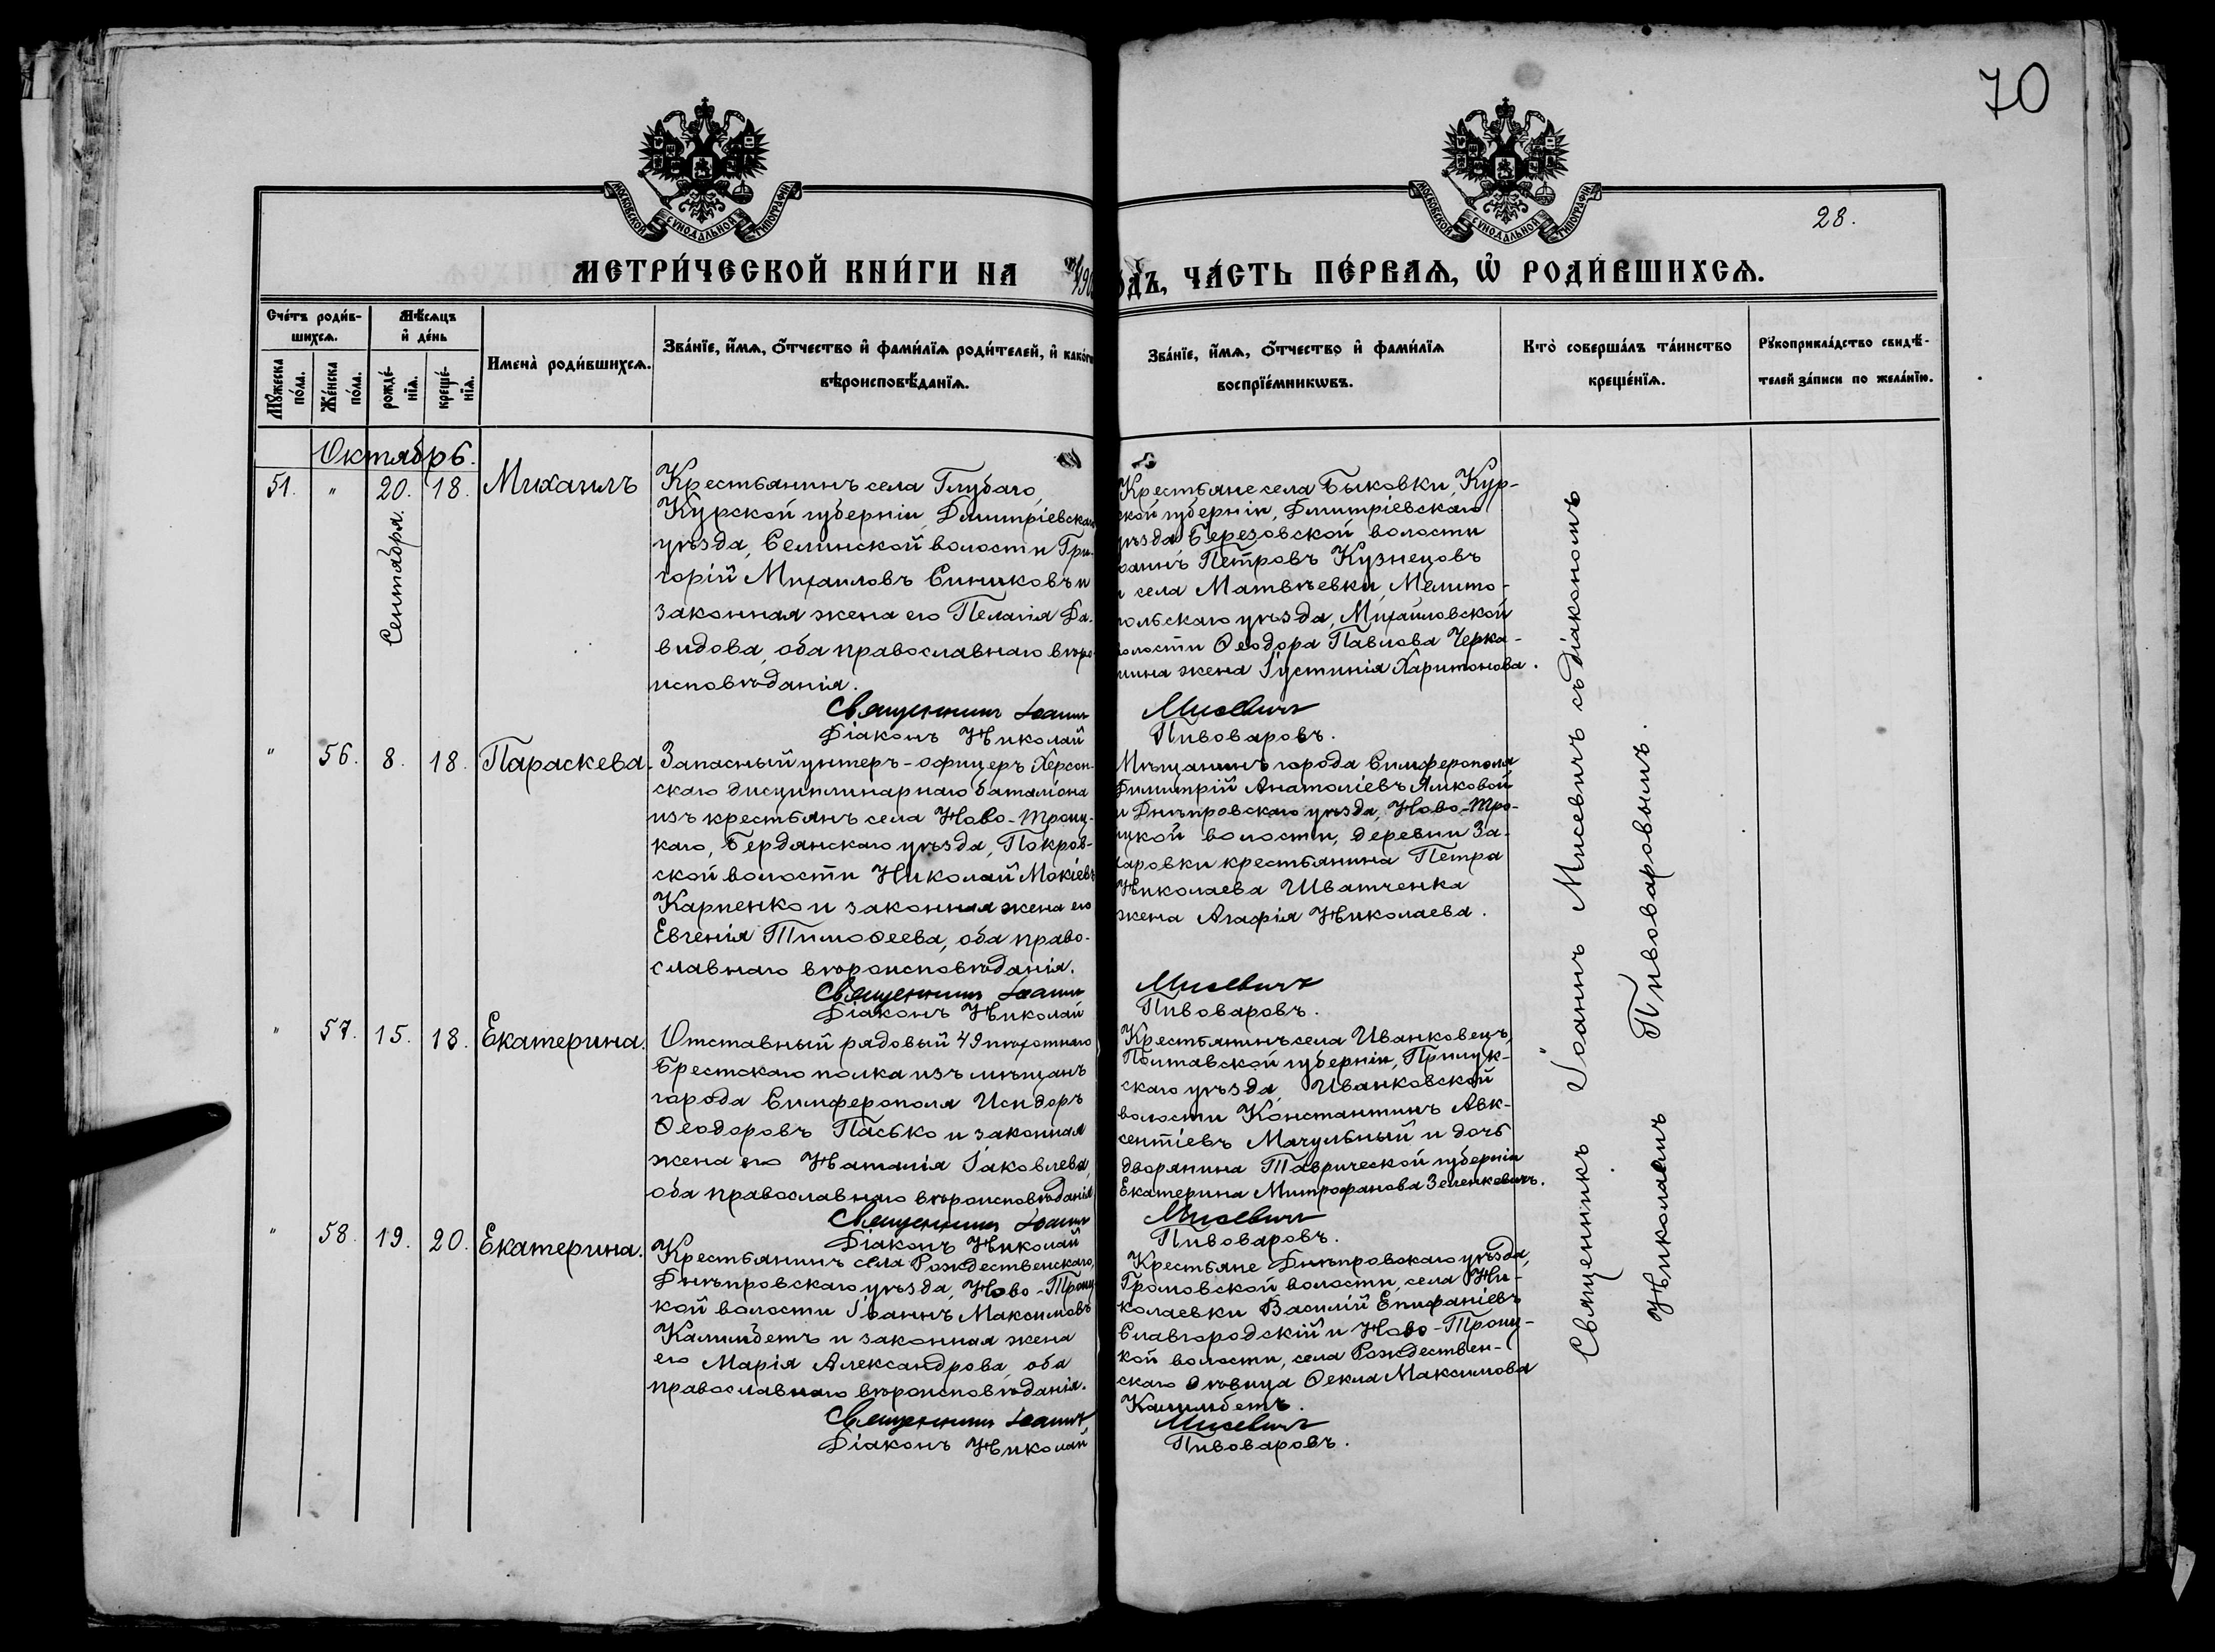 70
МОСКОВСКОЙ СУНОДАЛЬНОЙ ТИПОГРАФIИ
МОСКОВСКОЙ СУНОДАЛЬНОЙ ТИПОГРАФIИ
28.
МЕТРИ́ЧЕСКОЙ КНИ́ГИ НА 190
ОДЪ, ЧА́СТЬ ПЕ́РВАѦ, Ѡ РОДИ́ВШИХСѦ.
Сче́тъ роди́в-
шихсѧ.
Мꙋ́жеска
по́ла.
Же́нска
по́ла.
Мѣ́сѧцъ
и҆ де́нь
рожде́-
нїѧ.
креще́-
нїѧ.
Имена̀ роди́вшихсѧ.
Зва́нїе, и҆́мѧ, ѻ҆́тчество и҆ фами́лїѧ роди́телей, и҆ како́гѡ
вѣроисповѣ́данїѧ.
Зва́нїе, и҆́мѧ, ѻ҆́тчество и҆ фами́лїѧ
воспрїе́мникѡвъ.
Кто̀ соверша́лъ та́инство
креще́нїѧ.
Рꙋкоприкла́дство свидѣ́-
телей за́писи по жела́нїю.
Октябрь.
51. " 20. 18. Михаилъ
Сентября.
Крестьянинъ села Глубаго,
Курской губерніи, Димитріевскаго
уѣзда, Селинской волости Гри-
горій Михаиловъ Синиковъ и
законная жена его Пелагія Да-
видова, оба православнаго вѣро-
исповѣданія.
Священникъ Іоаннъ
Діаконъ Николай
Крестьяне села Быковки, Кур-
ской губерніи, Димитріевскаго
уѣзда Березовской волости
оаннъ Петровъ Кузнецовъ
и села Матвѣевки, Мелито-
польскаго уѣзда, Михаиловской
волости Ѳеодора Павлова Черка-
шина жена Іустинія Харитонова.
Мисевичъ
Пивоваровъ.
" 56. 8. 18. Параскева.
Запасный унтеръ-офицеръ Херсон-
скаго дисциплинарнаго баталіона
изъ крестьянъ села Ново-Троиц-
каго, Бердянскаго уѣзда, Покров-
ской волости Николай Мокіевъ
Карпенко и законная жена его
Евгенія Тимоѳеева, оба право-
славнаго вѣроисповѣданія.
Священникъ Іоаннъ
Діаконъ Николай
Мѣщанинъ города Симферополя
Димитрій Анатоліевъ Яликовой
и Днѣпровскаго уѣзда, Ново-Тро-
ицкой волости, деревни За-
харовки крестьянина Петра
Николаева Шватченка
жена Агафія Николаева.
Мисевичъ
Пивоваровъ.
" 57. 15. 18. Екатерина.
Отставный рядовый 49 пѣхотнаго
Брестскаго полка изъ мѣщанъ
города Симферополя Исидоръ
Ѳеодоровъ Пасько и законная
жена его Наталія Іаковлева,
оба православнаго вѣроисповѣданія
Священникъ Іоаннъ
Діаконъ Николай
Крестьянинъ села Иванковецъ,
Полтавской губерніи, Прилук-
скаго уѣзда, Иванковской
волости Константинъ Авк-
сентіевъ Мачульный и дочь
дворянина Таврической губерніи
Екатерина Митрофанова Зеленкевичъ.
Мисевичъ
Пивоваровъ.
" 58. 19. 20. Екатерина.
Крестьянинъ села Рождественскаго,
Днѣпровскаго уѣзда, Ново-Троиц-
кой волости Іоаннъ Максимовъ
Калимбетъ и законная жена
его Марія Александрова, оба
православнаго вѣроисповѣданія.
Священникъ Іоаннъ
Діаконъ Николай
Крестьяне Днѣпровскаго уѣзда,
Громовской волости, села Ни-
колаевки Василій Епифаніевъ
Славгородскій и Ново-Троиц-
кой волости, села Рождествен-
скаго дѣвица Ѳекла Максимова
Калимбетъ.
Мисевичъ
Пивоваровъ.
Священникъ Іоаннъ Мисевичъ съ діакономъ
Николаемъ Пивоваровымъ.